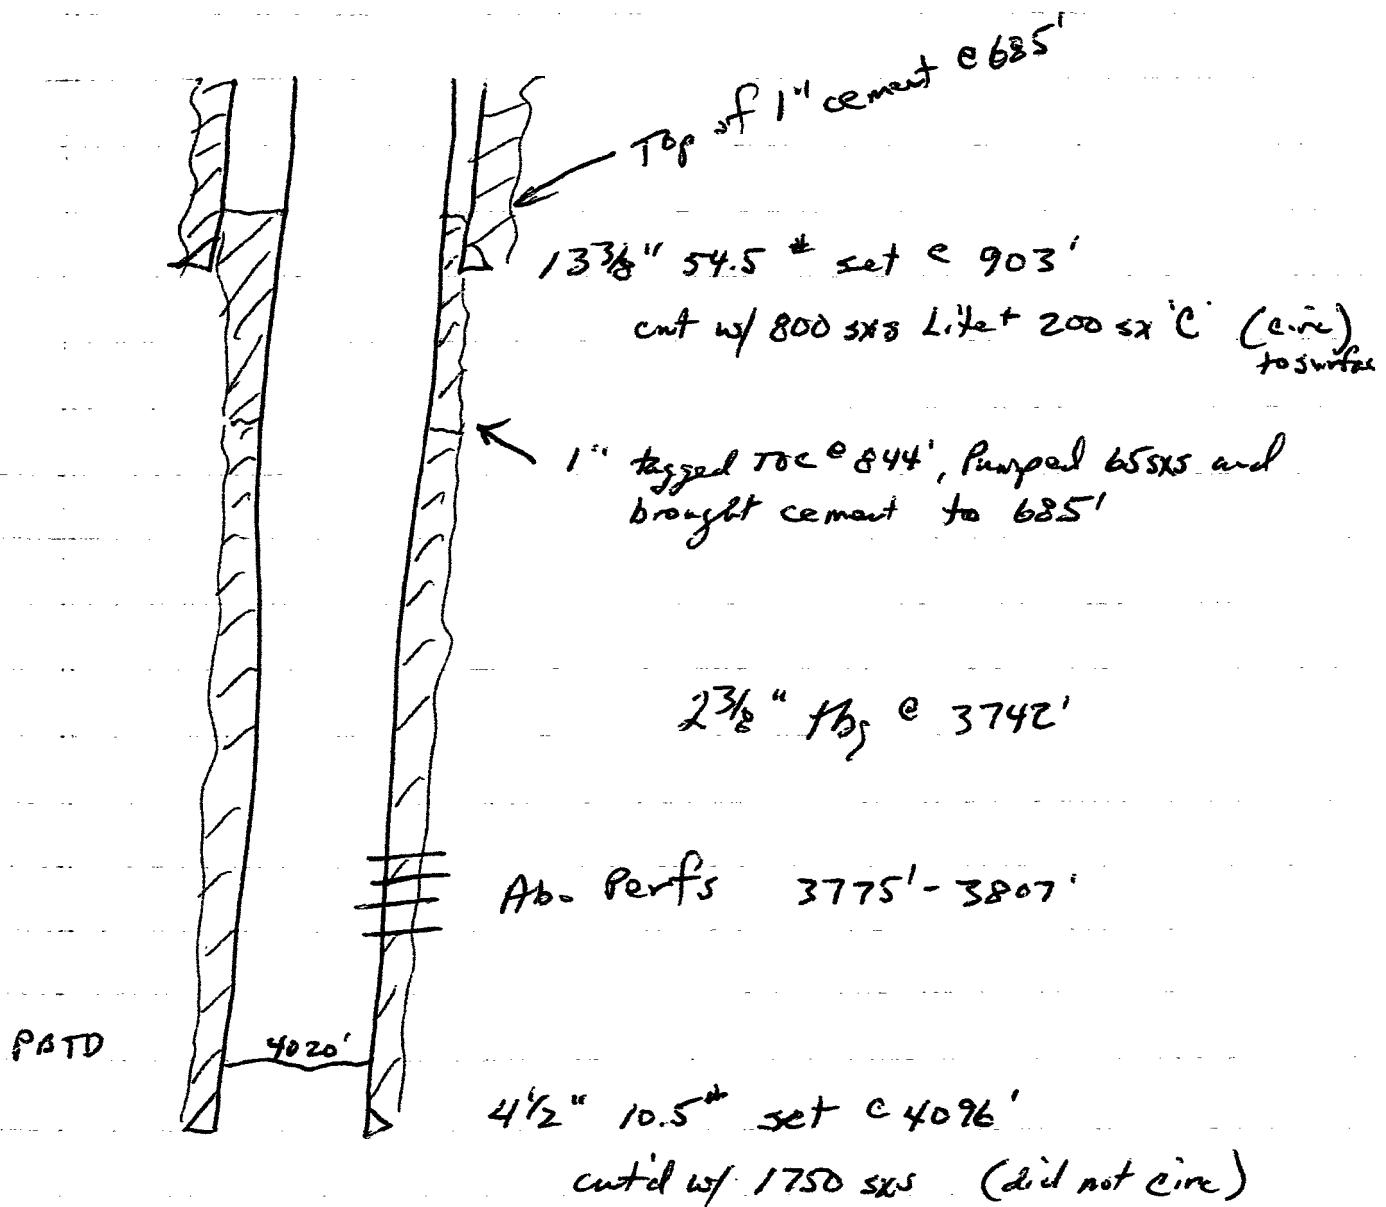 Top of 1" cement @ 685'
13 3/8" 54.5 # set @ 903'
cmt w/ 800 sxs Lite + 200 sx 'C' (circ)
to surfac
1" tagged TOC @ 844', Pumped 65 sxs and
brought cement to 685'
2 3/8" tbg @ 3742'
Abo Perfs 3775' - 3807'
PBTD
4020'
4 1/2" 10.5 # set @ 4096'
cmt'd w/ 1750 sxs (did not circ)